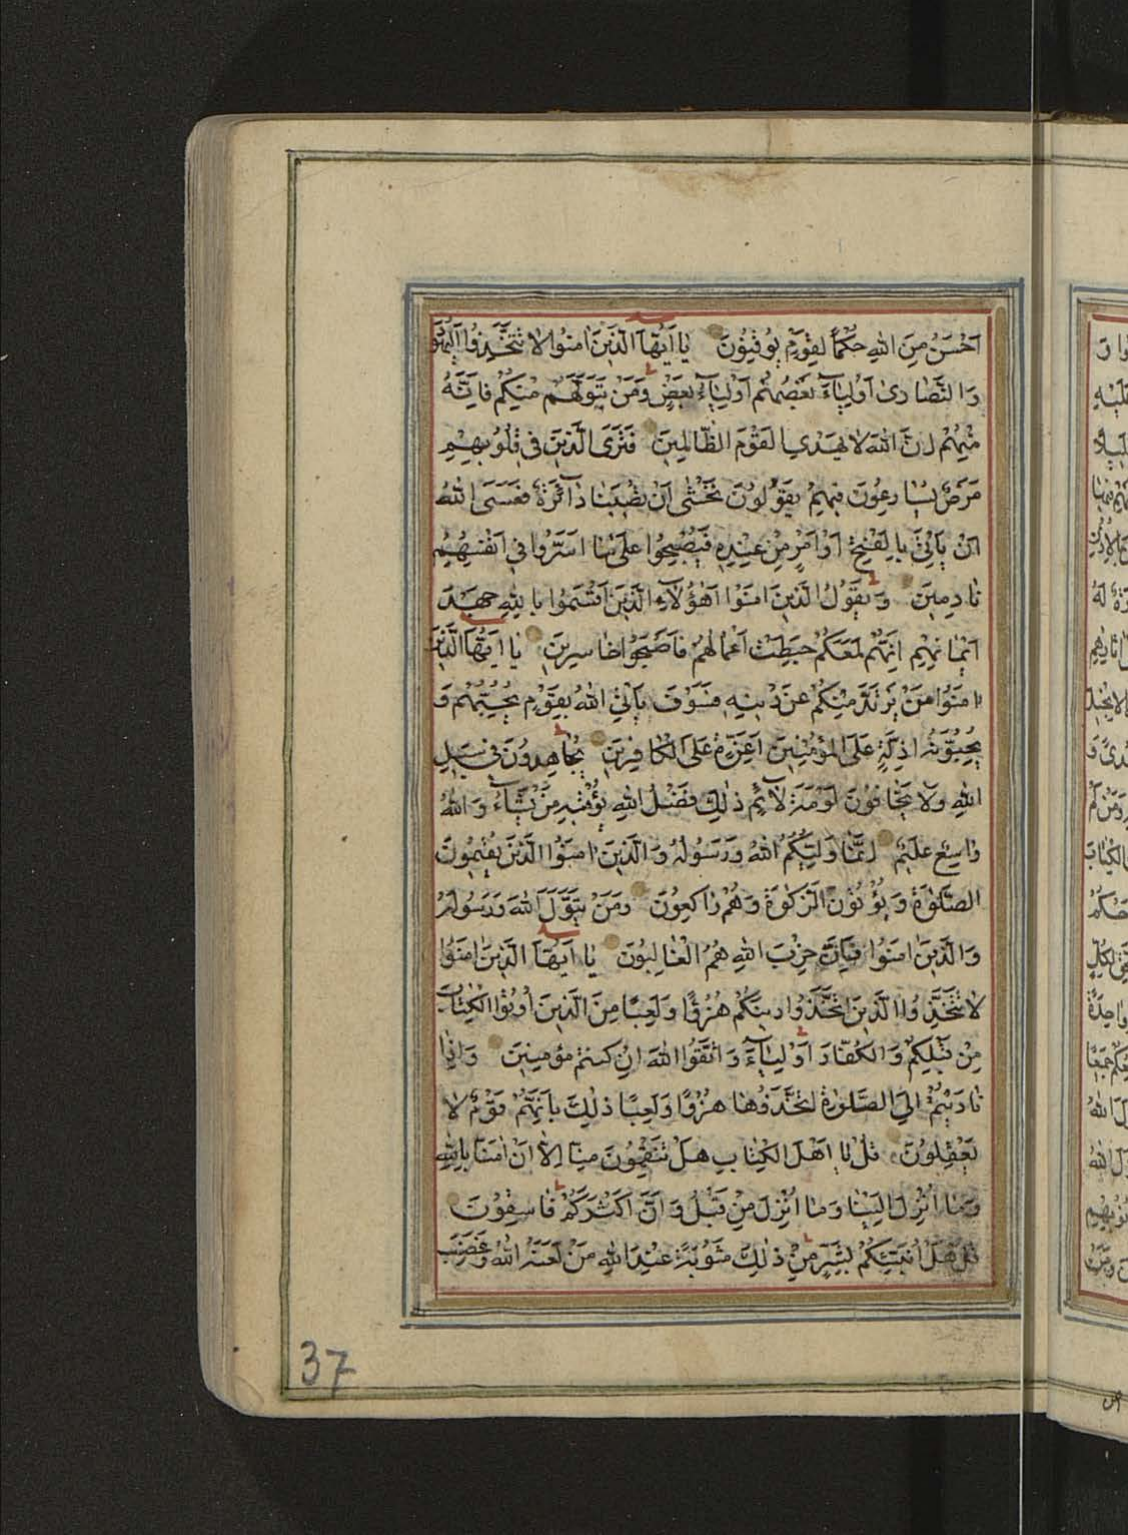 اَحْسَنُ مِنَ اللهِ حُكْمًا لِقَوْمٍ يُوقِنُونَ يٰا اَيُّهَا الَّذِينَ اٰمَنُوا لاٰ تَتَّخِذُوا الْيَهُودَ
وَالنَّصٰارىٰ اَوْلِيٰاۤءَ بَعْضُهُمْ اَوْلِيٰاۤءُ بَعْضٍ وَمَنْ يَتَوَلَّهُمْ مِنْكُمْ فَاِنَّهُ
مِنْهُمْ اِنَّ اللهَ لاٰ يَهْدِي الْقَوْمَ الظّٰالِمِينَ فَتَرَى الَّذِينَ فِي قُلُوبِهِمْ
مَرَضٌ يُسٰارِعُونَ فِيهِمْ يَقُولُونَ نَخْشٰى اَنْ تُصِيبَنٰا دٰاۤئِرَةٌ فَعَسَى اللهُ
اَنْ يَاْتِيَ بِالْفَتْحِ اَوْ اَمْرٍ مِنْ عِنْدِهِ فَيُصْبِحُوا عَلىٰ مٰا اَسَرُّوا فِي اَنْفُسِهِمْ
نٰادِمِينَ وَيَقُولُ الَّذِينَ اٰمَنُوا اَهٰؤُلاٰۤءِ الَّذِينَ اَقْسَمُوا بِاللهِ جَهْدَ
اَيْمٰانِهِمْ اِنَّهُمْ لَمَعَكُمْ حَبِطَتْ اَعْمٰالُهُمْ فَاَصْبَحُوا خٰاسِرِينَ يٰا اَيُّهَا الَّذِينَ
اٰمَنُوا مَنْ يَرْتَدَّ مِنْكُمْ عَنْ دِينِهِ فَسَوْفَ يَاْتِي اللهُ بِقَوْمٍ يُحِبُّهُمْ وَ
يُحِبُّونَهُ اَذِلَّةٍ عَلَى الْمُؤْمِنِينَ اَعِزَّةٍ عَلَى الْكٰافِرِينَ يُجٰاهِدُونَ فِي سَبِيلِ
اللهِ وَلاٰ يَخٰافُونَ لَوْمَةَ لاٰۤئِمٍ ذٰلِكَ فَضْلُ اللهِ يُؤْتِيهِ مَنْ يَشٰاۤءُ وَاللهُ
وٰاسِعٌ عَلِيمٌ اِنَّمٰا وَلِيُّكُمُ اللهُ وَرَسُولُهُ وَالَّذِينَ اٰمَنُوا الَّذِينَ يُقِيمُونَ
الصَّلوٰةَ وَيُؤْتُونَ الزَّكوٰةَ وَهُمْ رٰاكِعُونَ وَمَنْ يَتَوَلَّ اللهَ وَرَسُولَهُ
وَالَّذِينَ اٰمَنُوا فَاِنَّ حِزْبَ اللهِ هُمُ الْغٰالِبُونَ يٰا اَيُّهَا الَّذِينَ اٰمَنُوا
لاٰ تَتَّخِذُوا الَّذِينَ اتَّخَذُوا دِينَكُمْ هُزُوًا وَلَعِبًا مِنَ الَّذِينَ اُوتُوا الْكِتٰابَ
مِنْ قَبْلِكُمْ وَالْكُفّٰارَ اَوْلِيٰاۤءَ وَاتَّقُوا اللهَ اِنْ كُنْتُمْ مُؤْمِنِينَ وَاِذٰا
نٰادَيْتُمْ اِلَى الصَّلوٰةِ اتَّخَذُوهٰا هُزُوًا وَلَعِبًا ذٰلِكَ بِاَنَّهُمْ قَوْمٌ لاٰ
يَعْقِلُونَ قُلْ يٰا اَهْلَ الْكِتٰابِ هَلْ تَنْقِمُونَ مِنّٰا اِلاّٰ اَنْ اٰمَنّٰا بِاللهِ
وَمٰا اُنْزِلَ اِلَيْنٰا وَمٰا اُنْزِلَ مِنْ قَبْلُ وَاَنَّ اَكْثَرَكُمْ فٰاسِقُونَ
قُلْ هَلْ اُنَبِّئُكُمْ بِشَرٍّ مِنْ ذٰلِكَ مَثُوبَةً عِنْدَ اللهِ مَنْ لَعَنَهُ اللهُ وَغَضِبَ
37